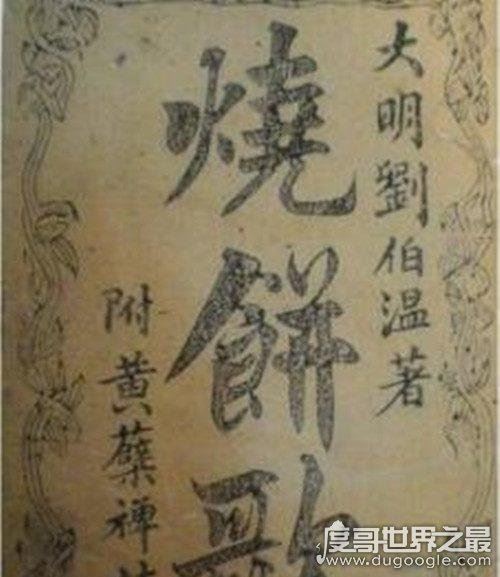 大明劉伯温著
燒餅歌
附黃蘗禪
度哥世界之最
www.dugoogle.com